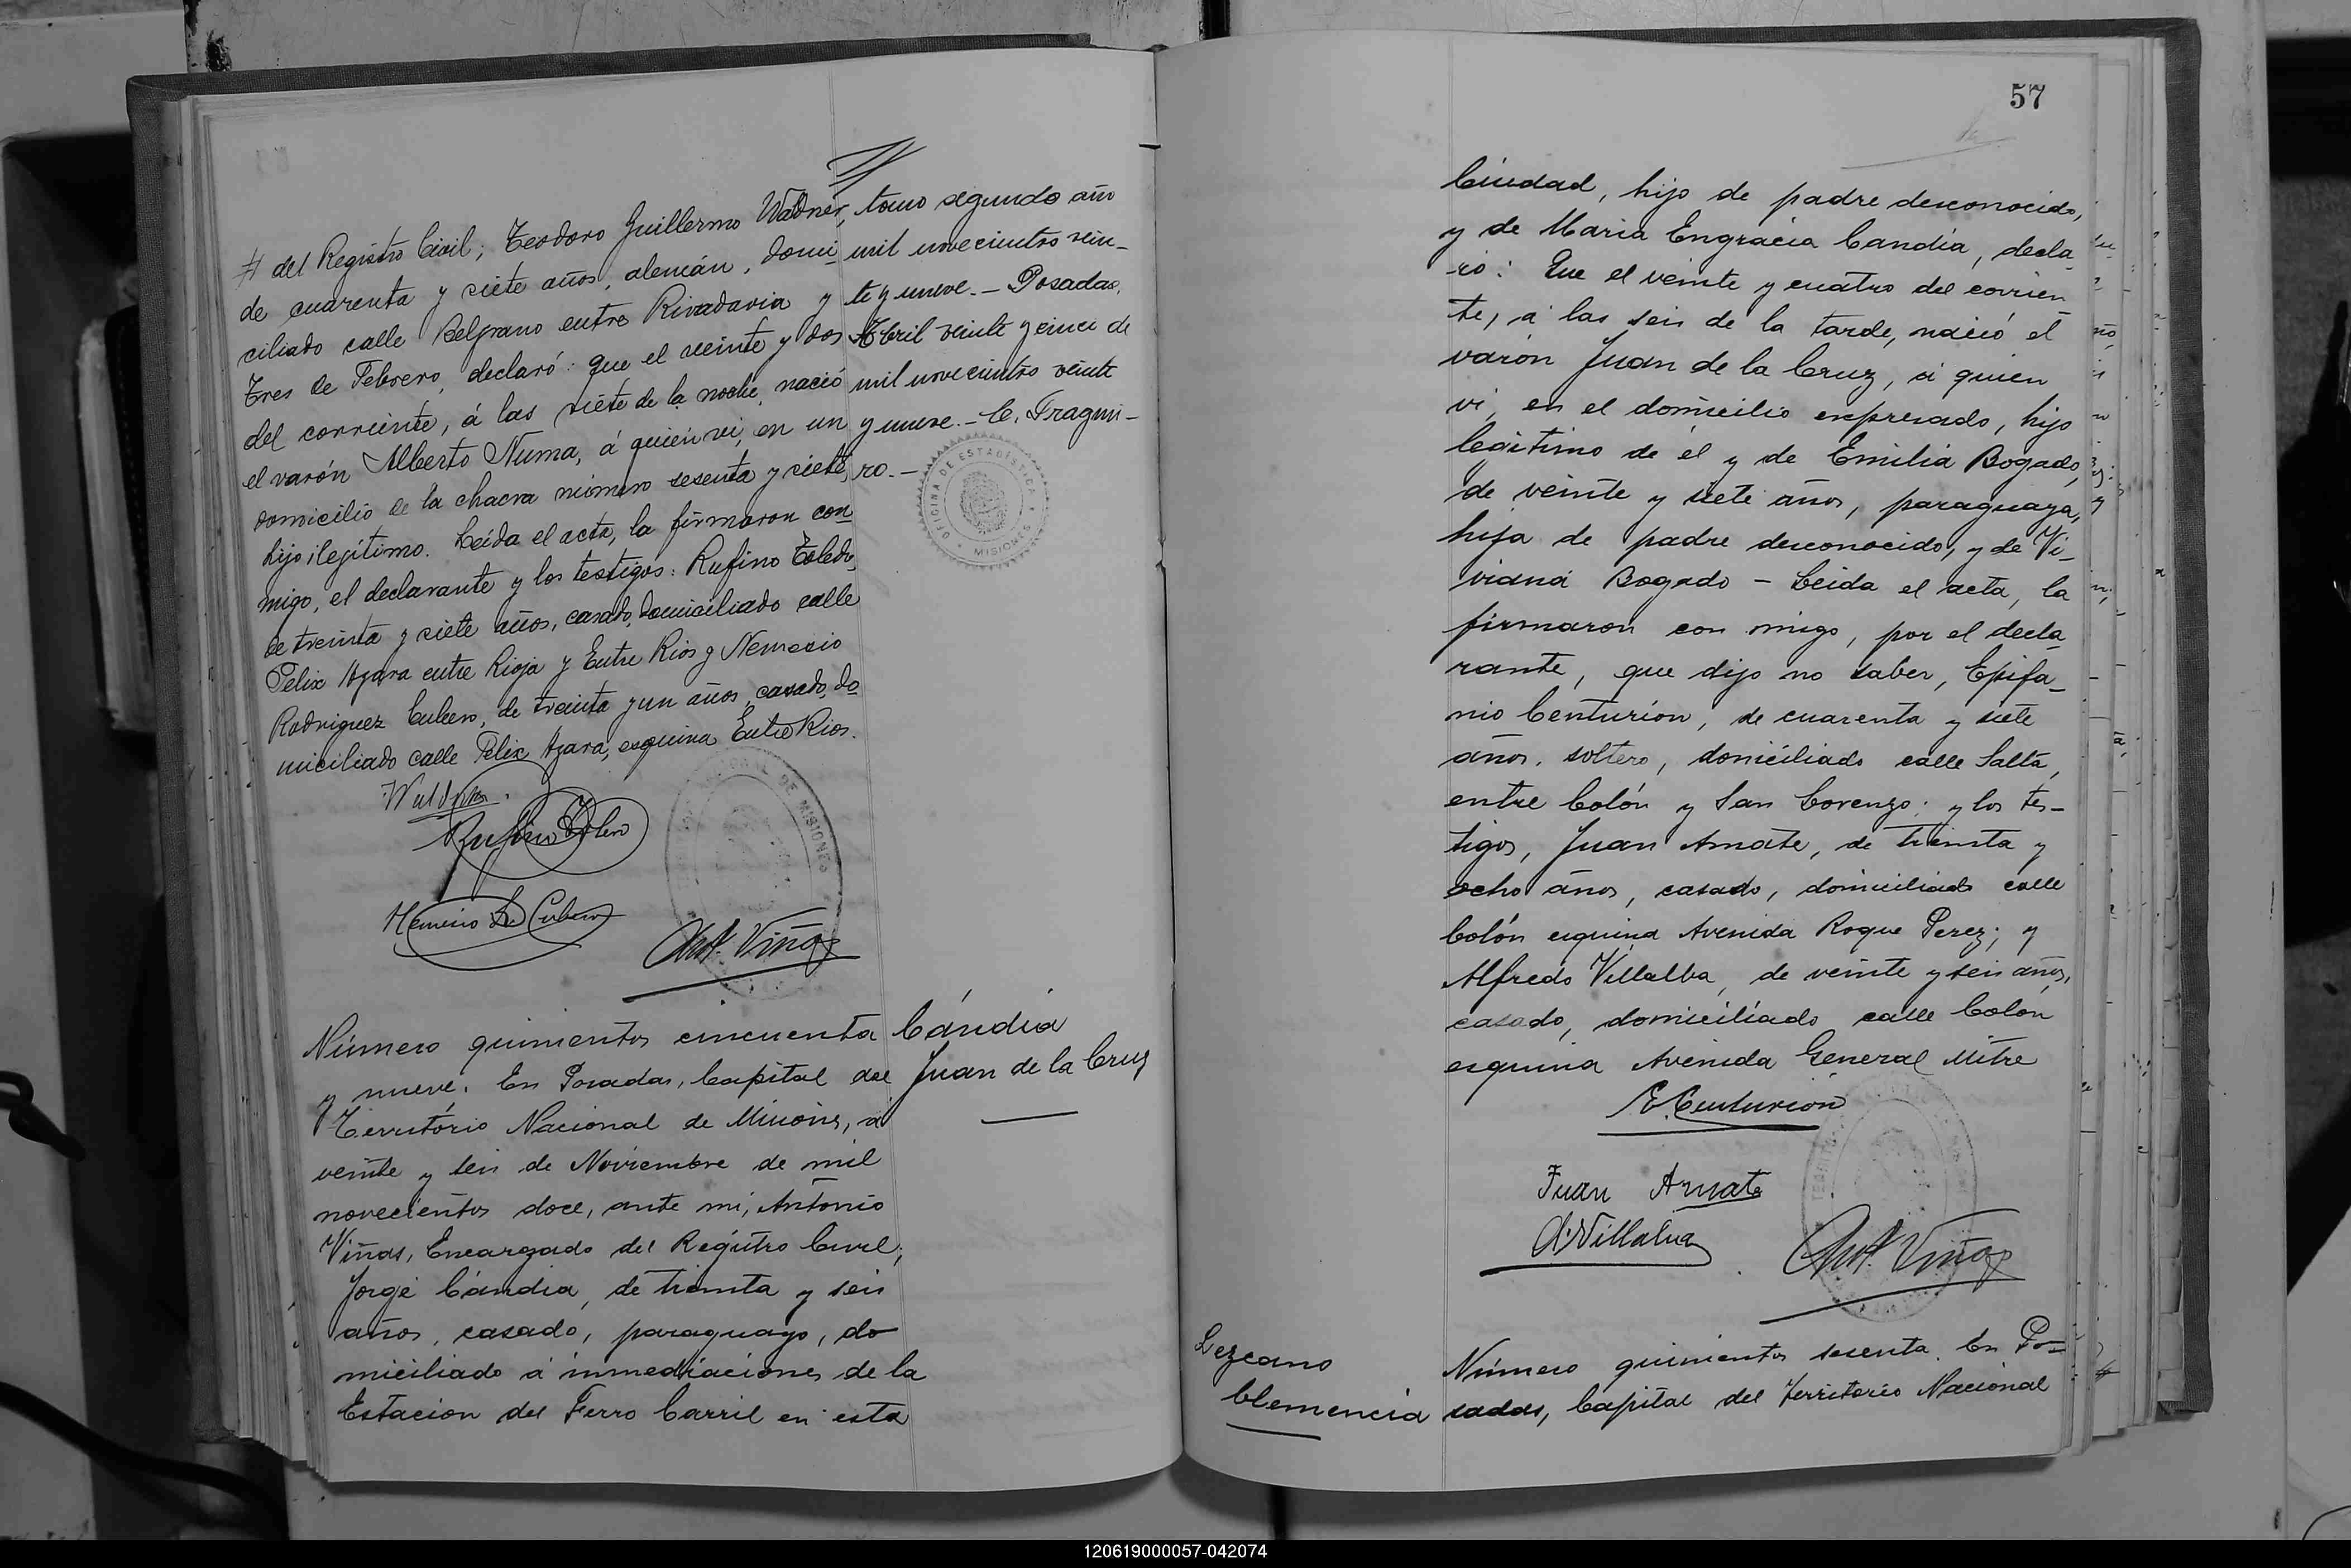 # del Registro Civil; Teodoro Guillermo Waldner,
de cuarenta y siete años, alemán, domi
ciliado calle Belgrano entre Rivadavia y
Tres de Febrero, declaró: que el veinte y dos
del corriente, á las siete de la noche, nació
el varón Alberto Numa, á quien vi, en un
domicilio de la chacra número sesenta y siete,
hijo ilegítimo. Leída el acta, la firmaron con
migo, el declarante y los testigos: Rufino Toledo,
de treinta y siete años, casado, domiciliado calle
Felix Azara entre Rioja y Entre Rios y Nemesio
Rodriguez Cubero, de treinta y un años, casado, do
miciliado calle Felix Azara, esquina Entre Rios.
tomo segundo año
mil novecientos vein-
te y nueve.- Posadas,
Abril veinte y cinco de
mil novecientos veinte
y nueve.- C. Fragui-
ro.-
OFICINA DE ESTADISTICA
MISIONES
Waldner.
Rufino Toledo
Nemesio R. Cubero
DE MISIONES
Ant. Viñas
Número quinientos cincuenta
y nueve. En Posadas, Capital del
Território Nacional de Misiones, á
veinte y seis de Noviembre de mil
novecientos doce, ante mi, Antonio
Viñas, Encargado del Registro Civil;
Jorge Cándia, de treinta y seis
años, casado, paraguayo, do
miciliado á inmediaciones de la
Estacion del Ferro Carril en esta
Cándia
Juan de la Cruz
57
Ciudad, hijo de padre desconocido,
y de Maria Engracia Candia, decla
ró: Que el veinte y cuatro del corrien
te, á las seis de la tarde, nació el
varón Juan de la Cruz, á quien
vi, en el domicilio expresado, hijo
legitimo de él y de Emilia Bogado,
de veinte y siete años, paraguaya,
hija de padre desconocido, y de Vi-
viana Bogado - Leida el acta, la
firmaron con migo, por el decla
rante, que dijo no saber, Epifa-
nio Centurión, de cuarenta y siete
años, soltero, domiciliado calle Salta,
entre Colón y San Lorenzo; y los tes-
tigos, Juan Amate, de treinta y
ocho años, casado, domiciliado calle
Colón esquina Avenida Roque Perez; y
Alfredo Villalba, de veinte y seis años,
casado, domiciliado calle Colón
esquina Avenida General Mitre
E. Centurión
Juan Amate
A. Villalba
Ant. Viñas
Lezcano
Clemencia
Número quinientos sesenta. En Po-
sadas, Capital del Territorio Nacional
120619000057-042074